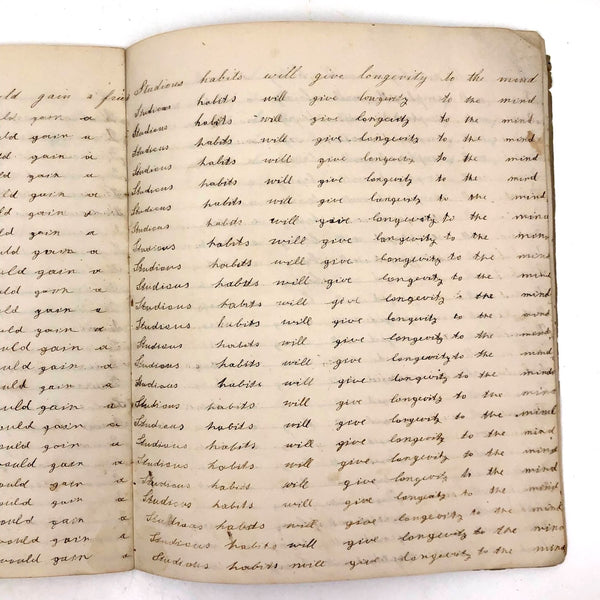 uld gain a frien
uld gain a
uld gain a
uld gain a
uld gain a
uld gain a
uld gain a
uld gain a
uld gain a
uld gain a
uld gain a
uld gain a
uld gain a
ould gain a
ould gain a
ould gain a
ould gain a
ould gain a
ould gain a
would gain a
would gain a
ould gain a
ould gain a
would gain a
would gain a
Studious habits will give longevity to the mind
Studious habits will give longevity to the mind.
Studious habits will give longevity to the mind
Studious habits will give longevity to the mind.
Studious habits will give longevity to the mind
Studious habits will give longevity to the mind
Studious habits will give longevity to the mind
Studious habits will give longevity to the mind
Studious habits will give longevity to the mind
Studious habits will give longevity to the mind
Studious habits will give longevity to the mind
Studious habits will give longevity to the mind
Studious habits will give longevity to the mind
Studious habits will give longevity to the mind
Studious habits will give longevity to the mind
Studious habits will give longevity to the mind
Studious habits will give longevity to the mind
Studious habits will give longevity to the mind
Studious habits will give longevity to the mind
Studious habits will give longevity to the mind
Studious habits will give longevity to the mind
Studious habits will give longevity to the mind
Studious habits will give longevity to the mind
Studious habits will give longevity to the mind
Studious habits will give longevity to the mind